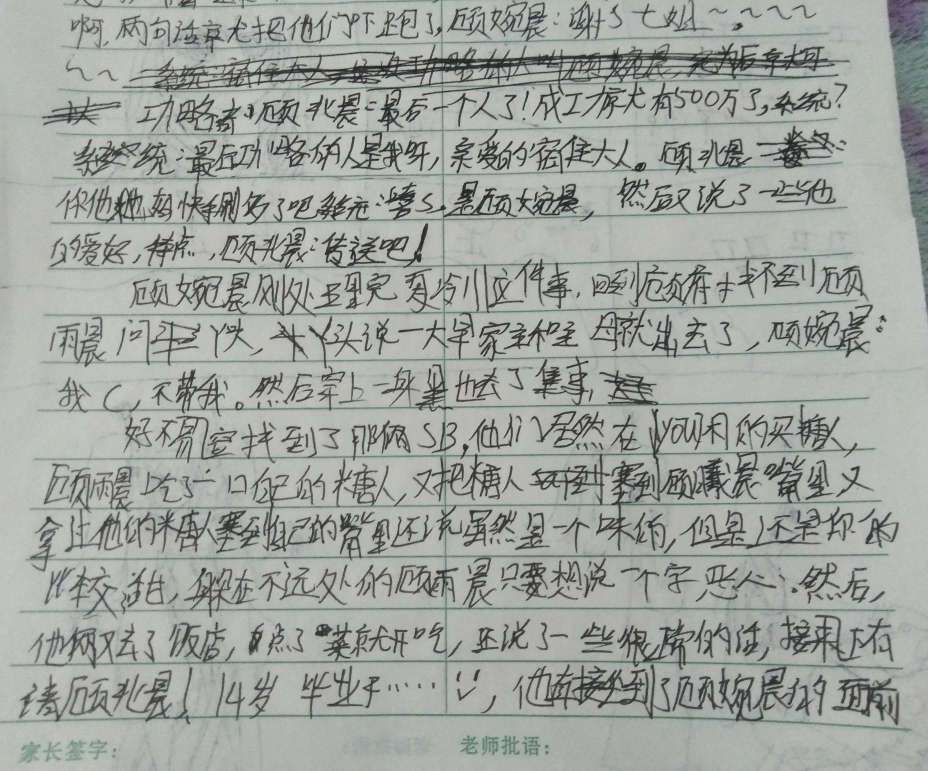 啊,两句话京尤把他们吓跑了,顾婉晨:谢了七姐~~~~
~~
功略者:顾兆晨:最后一个人了!成工京尤有500万了,系统?
系统:最后功略的人是我呀,亲爱的宿住大人。顾兆晨
你他她妈快刷好了吧系统:嘻S是顾婉晨,然后又说了一些他
的爱好,特点,顾兆晨:传送吧!
顾婉晨刚处里完夏冷川这件事,回到顾府才找不到顾
雨晨问丫头,丫头说一大早家主和主母就出去了,顾婉晨:
我C,不带我。然后穿上一身黑也去了集事
好不易宜找到了那俩SB,他们居然在YOU闲的买糖人,
顾雨晨吃了一口自己的米糖人,又把糖人塞到顾曦晨嘴里又
拿让他的米糖人塞到自己的嘴里还说虽然是一个味的,但是还是你的
比较甜,躲在不远处的顾雨晨只要想说一个字恶心:然后,
他俩又去了饭店,点了菜就开吃,还说了一些很的话,接下有
请顾兆晨!14岁 毕业于……,他直接坐到了顾婉晨的面前
家长签字: 老师批语: